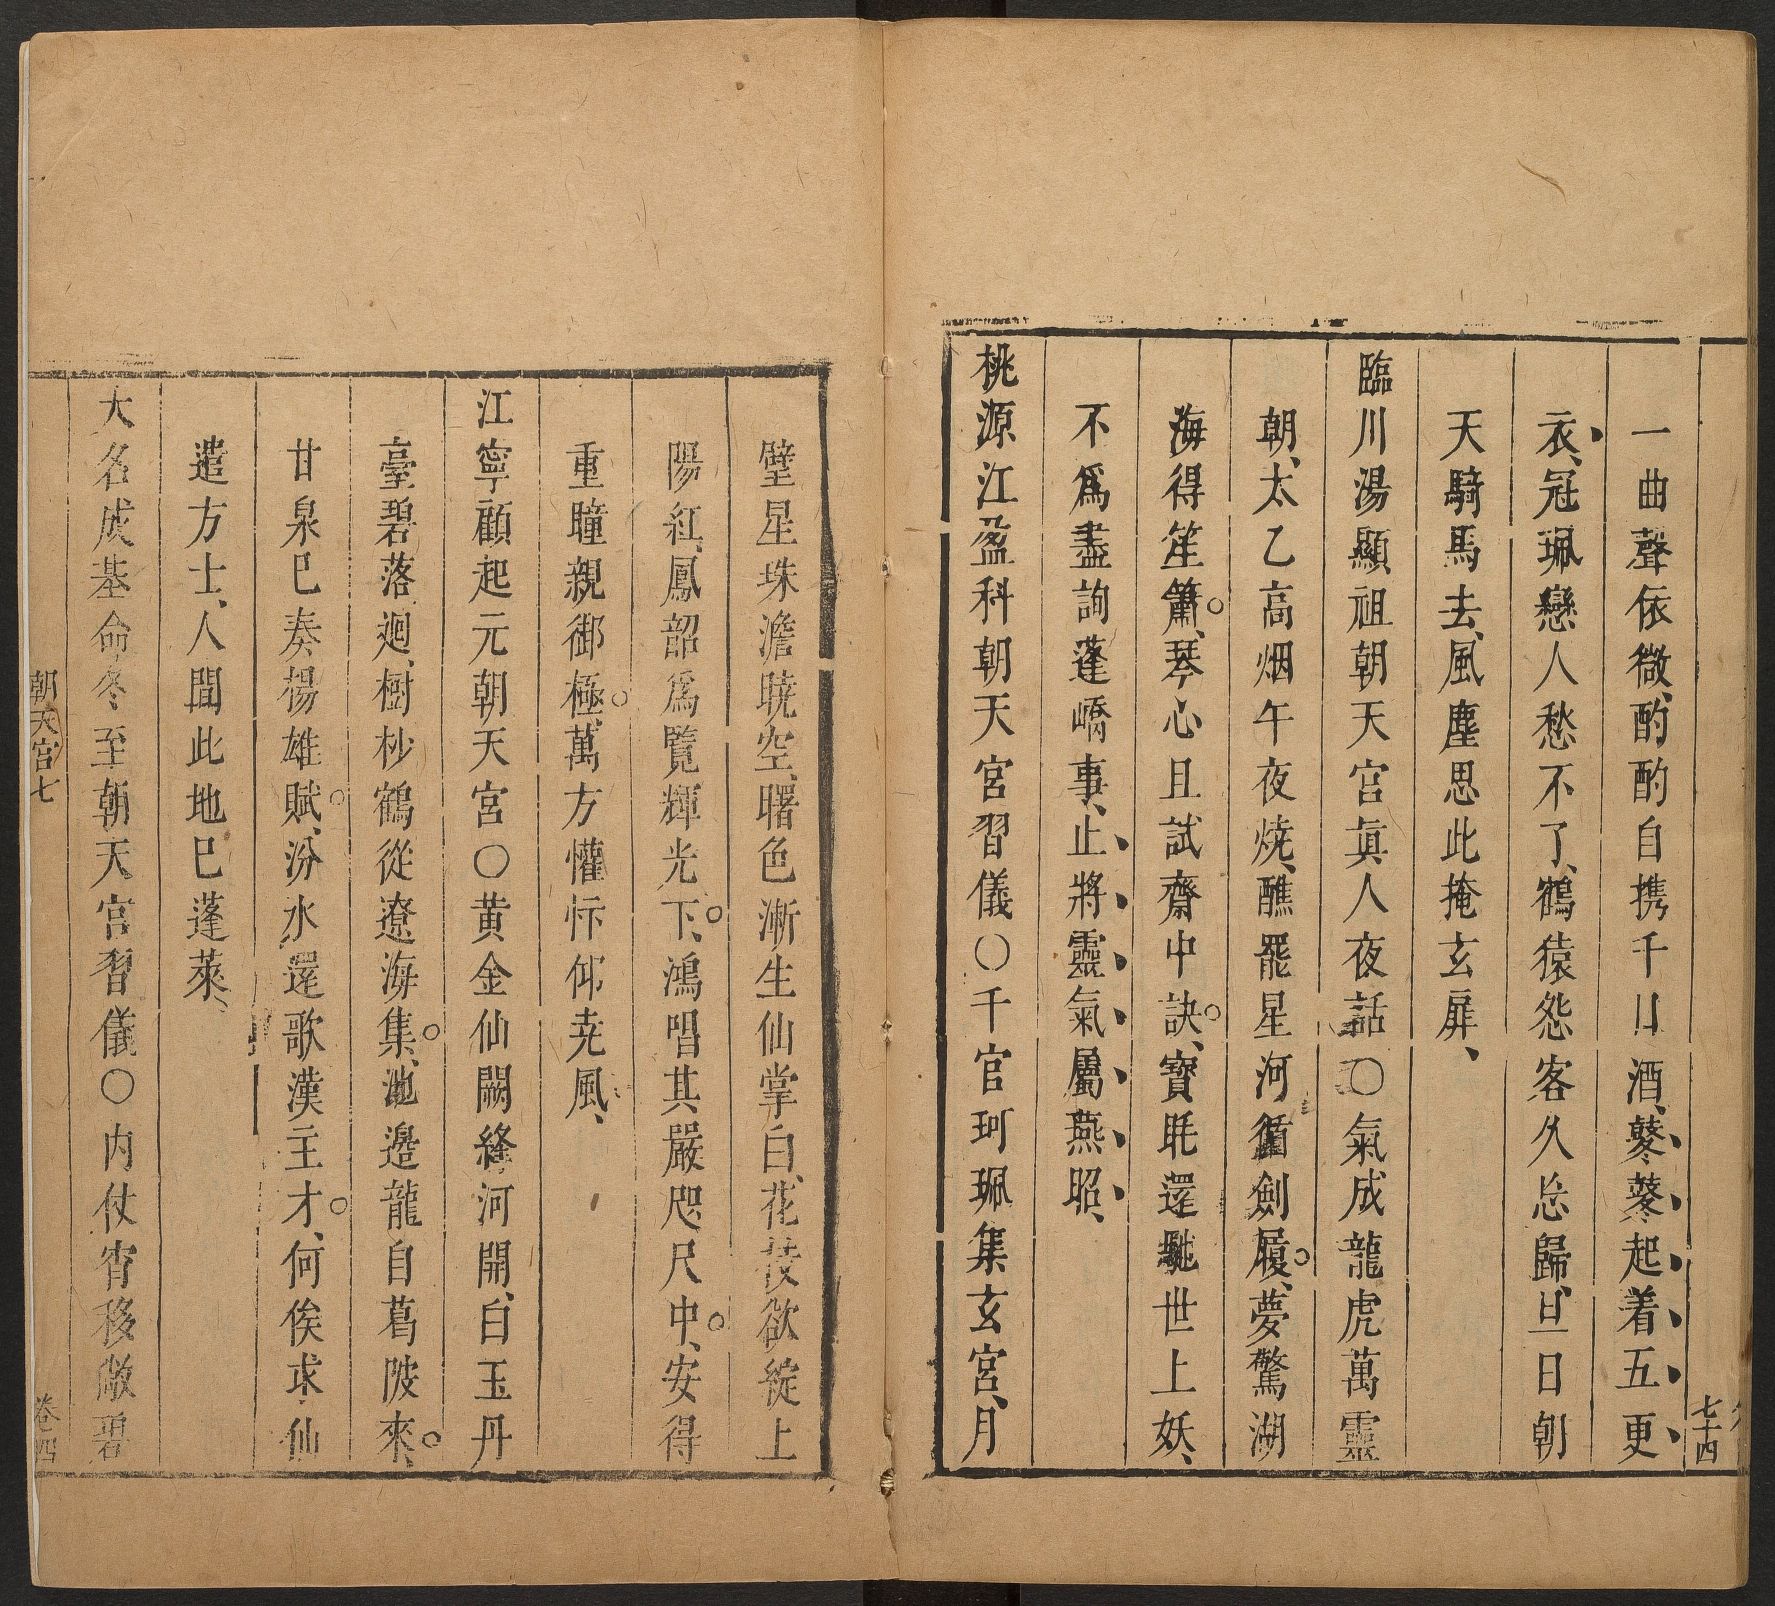 七十四
一曲聲依微、酌酌自携千日酒、鼕鼕起着五更
衣、冠珮戀人愁不了、鶴猿怨客久忘歸、旦日朝
天騎馬去、風塵思此掩玄扉、
臨川湯顯祖朝天宮眞人夜話○氣成龍虎萬靈
朝、太乙高烟午夜燒、醮罷星河循劍履、夢驚湖
海得笙簫、琴心且試齋中訣、寶眊還馳世上妖、
不爲盡詢蓬嶠事、止將靈氣屬燕昭、
桃源江盈科朝天宮習儀○千官珂珮集玄宮、月
壁星珠澹曉空、曙色漸生仙掌白、花枝欲綻上
陽紅、鳳韶爲覽輝光下、鴻唱其嚴咫尺中、安得
重瞳親御極、萬方懽忭仰尭風、
江寧顧起元朝天宮○黃金仙闕絳河開、白玉丹
臺碧落迴、樹杪鶴從遼海集、池邉龍自葛陂來、
甘泉巳奏楊雄賦、汾水還歌漢主才、何俟求仙
遣方士、人間此地巳蓬萊、
大名成基命冬至朝天宮習儀○内仗宵移敞碧
朝天宮七
卷四